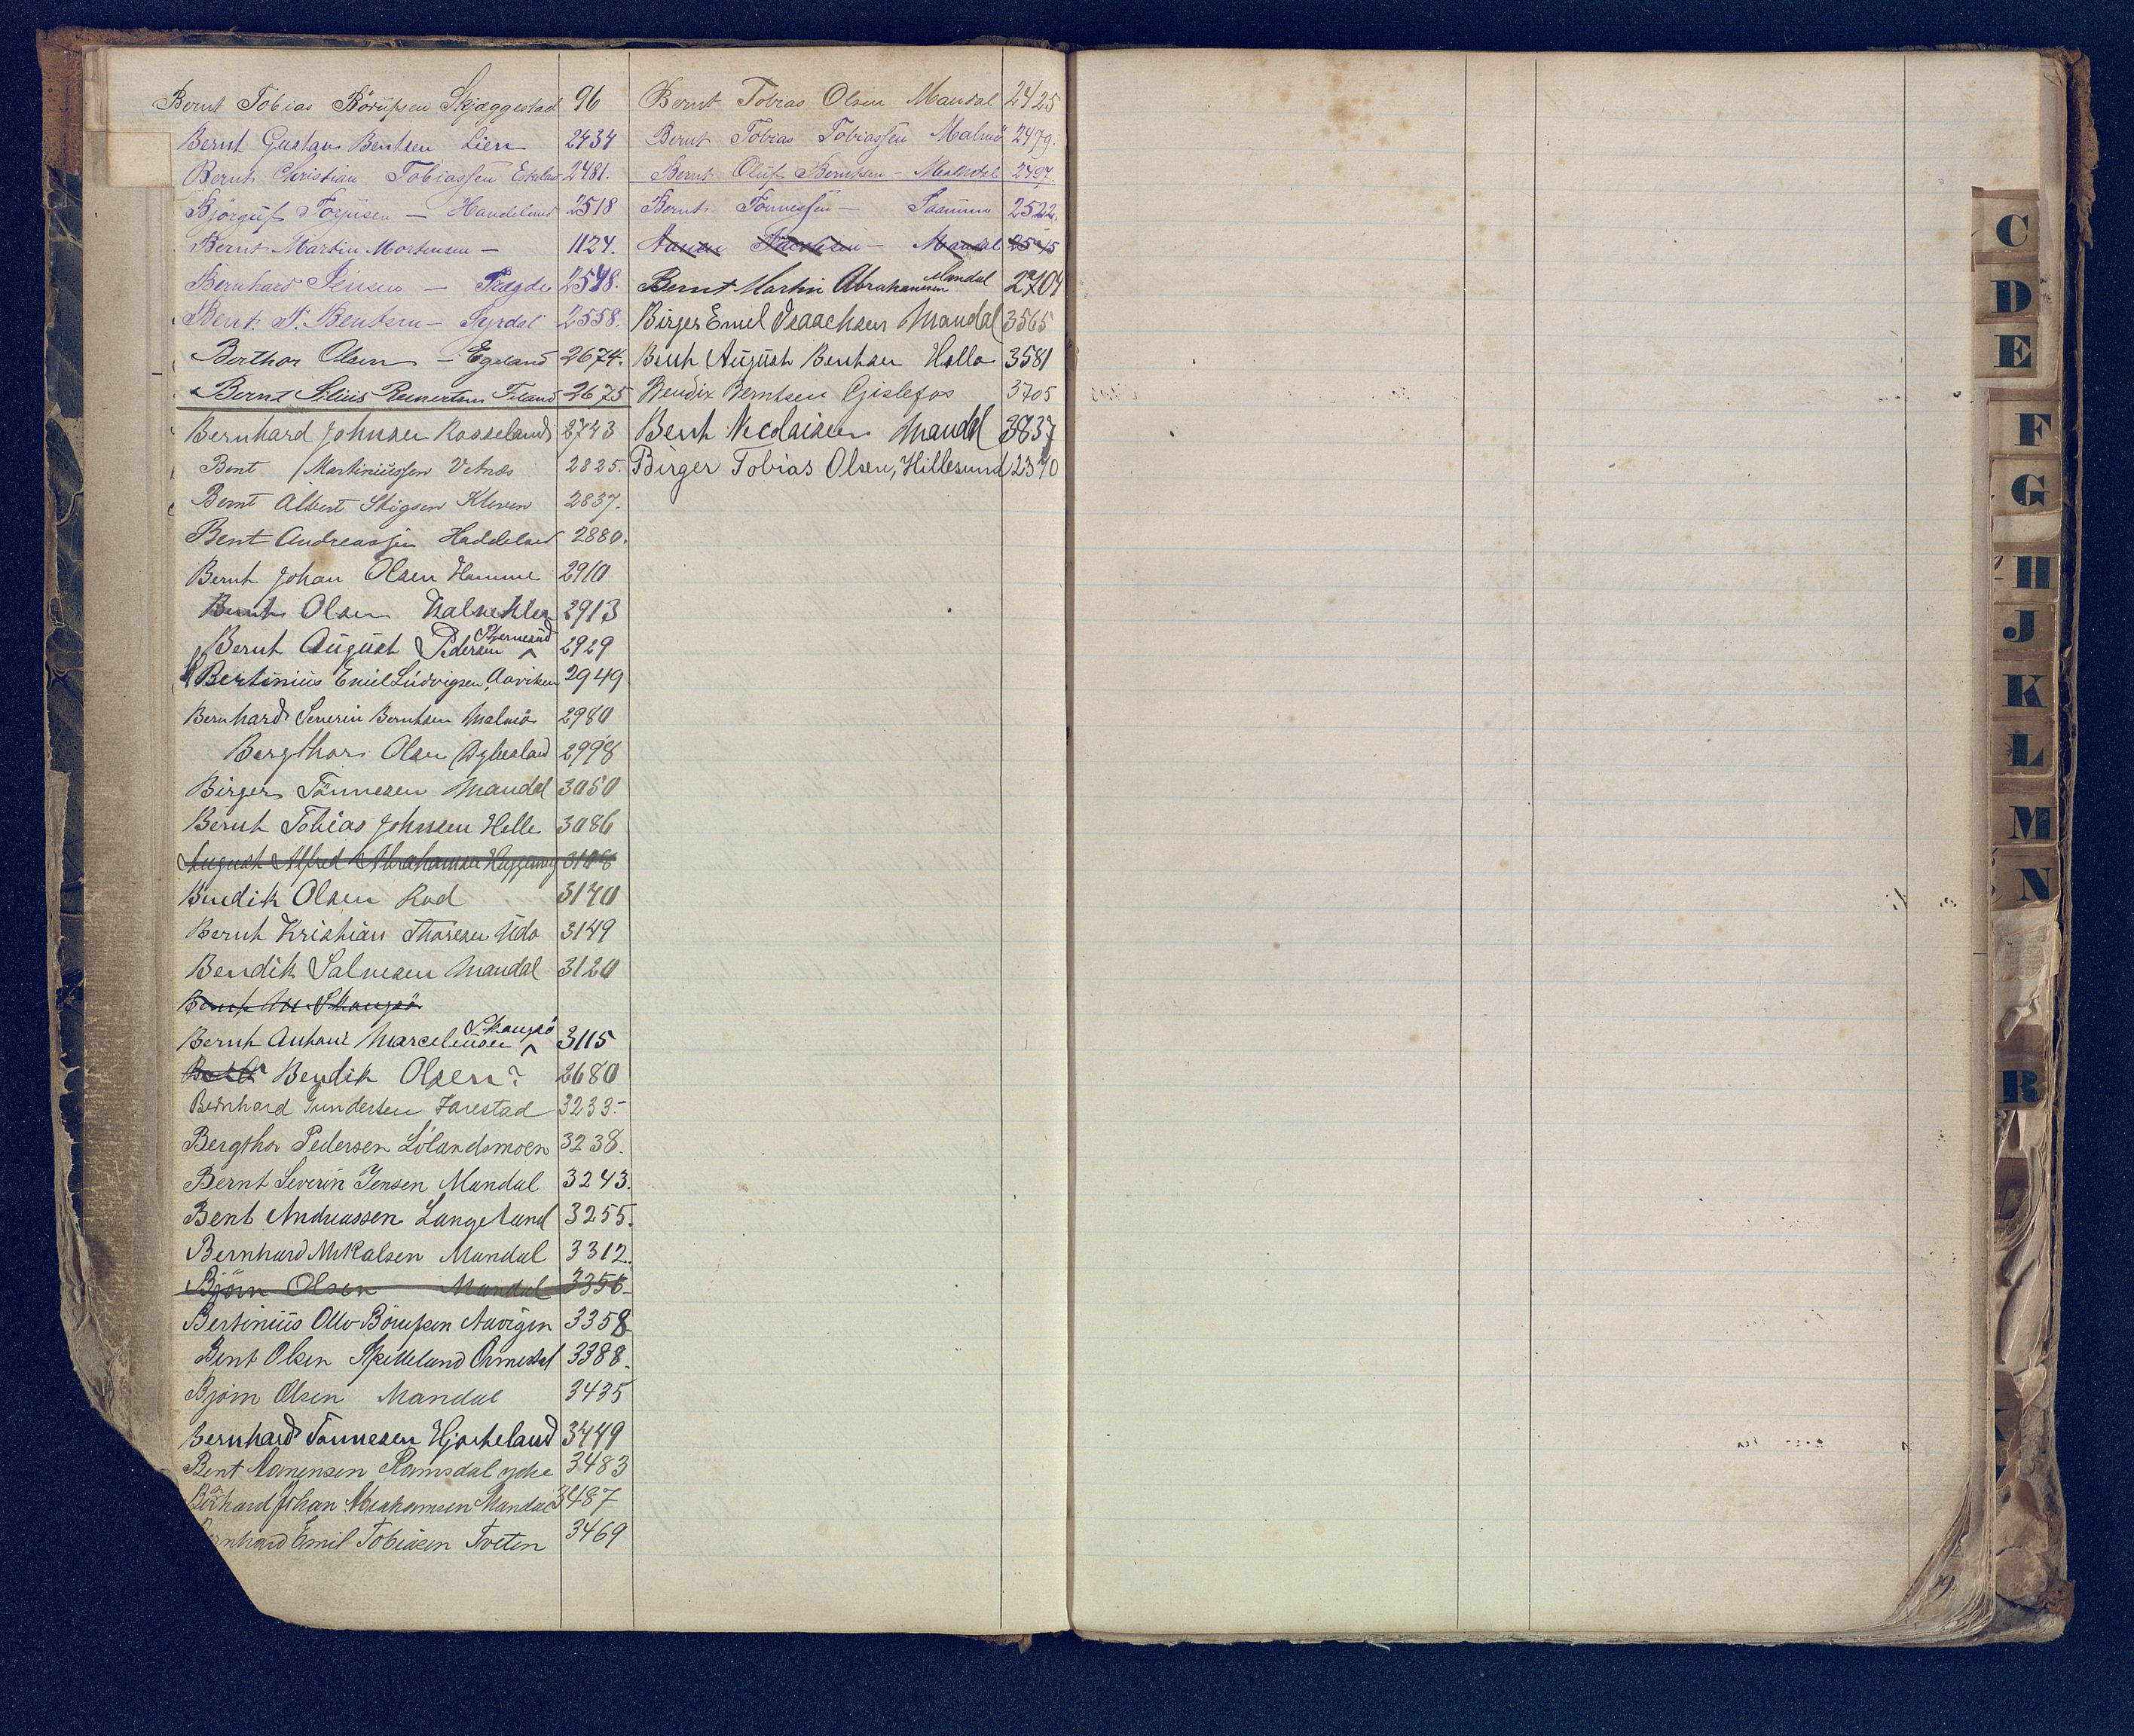 Bernt Tobias Börufsen Skjæggestad 96
Bernt Gustav Bentsen Lien 2434
Bernt Christian Tobiassen 2481.
Björguf Torjusen — Haadeland 2518
Bernt Martin Mortensen — 1124.
Bernhard Jensen — Trægde 2548.
Bent N. Bentsen — Syrdal 2558.
Berthor Olsen — Egeland 2674.
Bernt Silius Reinertsen Filand 2675
Bernhard Johnsen Rosseland 2743
Bent Martiniussen Vetnes 2825.
Bernt Albert Stigsen Kleven 2837.
Bent Andreassen Haddeland 2880.
Bernt Johan Olsen Homme 2910
Bernt Olsen 2913
Bernt August Pedersen ^ Stjernesund 2929
Bertinius Emil Ludvigsen, Aaviken 2949
Bernhard Severin Berntsen Malmö 2980
Bergthor Olsen Dybesland 2998
Birger Tönnesen Mandal 3050
Bernt Tobias Johnsen Helle 3086
August Alfred Abrahamsen 3108
Bendik Olsen Rød 3140
Bernt Kristian Thoresen Udø 3149
Bendik Salvesen Mandal 3120
Bernt M Skougsö
Bernt Antoni Marcelinsen ^ Skougsö 3115
Bendik Olsen? 2680
Bernhard Gundersen Farestad 3233.-
Bergthor Pedersen Lölandsmoen 3238.
Bernt Severin Jensen Mandal 3243.
Bent Andreassen Langeland 3255.
Bernhard Mikalsen Mandal 3312.
Björn Olsen Mandal 3356-
Bertinius Otto Börufsen Aavigen 3358
Bent Olsen Spilleland 3388.
Bjørn Olsen Mandal 3435
Bernhard Tönnesen Hjorteland 3449
Bent Aanensen Ramsdal ydre 3483
Berhard Johan Abrahamsen Mandal 3487
ernhard Emil Tobiasen Tveten 3469
Bernt Tobias Olsen Mandal 2425
Bernt Tobias Tobiassen Malmö 2479.
Bernt Oluf Berntsen — Mandal 2497.
Bernt Tönnessen — Saanum 2522.
Mandal
Bernt Martin Abrahamsen Mandal 2704
Birger Emil Isaachsen Mandal 3565
Bent August Bentsen Holla 3581
Bendix Berntsen Gislefos 3705
Bent Nicolaisen Mandal 3837
Birger Tobias Olsen, Hillesund 2370
C
D
E
F
G
H
J
K
L
M
N
R